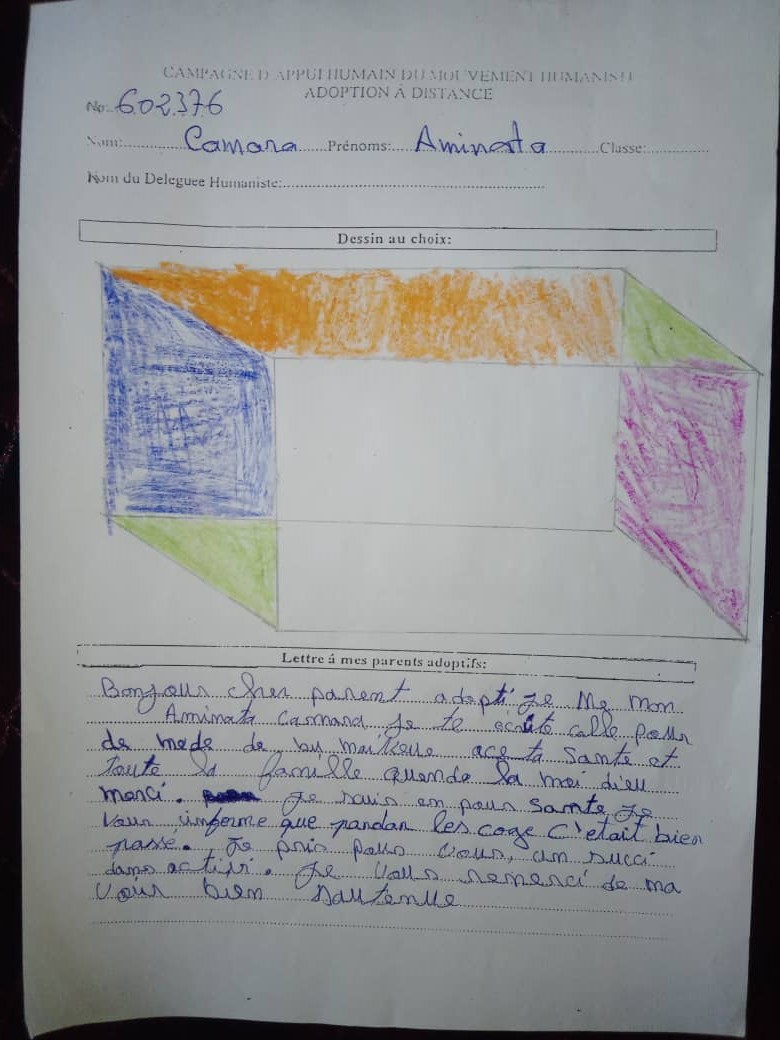 CAMPAGNE D'APPUI HUMAIN DU MOUVEMENT HUMANISTE
ADOPTION Á DISTANCE
No: 602376
Nom: Camara Prénoms: Aminata Classe:
Nom du Deleguee Humaniste:
Dessin au choix:
Lettre á mes parents adoptifs:
Bonjour cher parent adopti je Me mon
Aminata Camara je te calle pour
de de ta sante et
toute la famille quenda la moi dieu
merci. je suis en pour sante je
vour informe que pandan les coge c'etait bien
passe. Je pris pour vous, un succi
dans activi. Je vous remerci de ma
voir bien soutenue